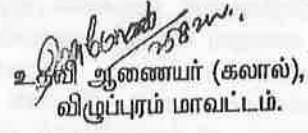 உதவி ஆணையர் (கலால்),
விழுப்புரம் மாவட்டம்.